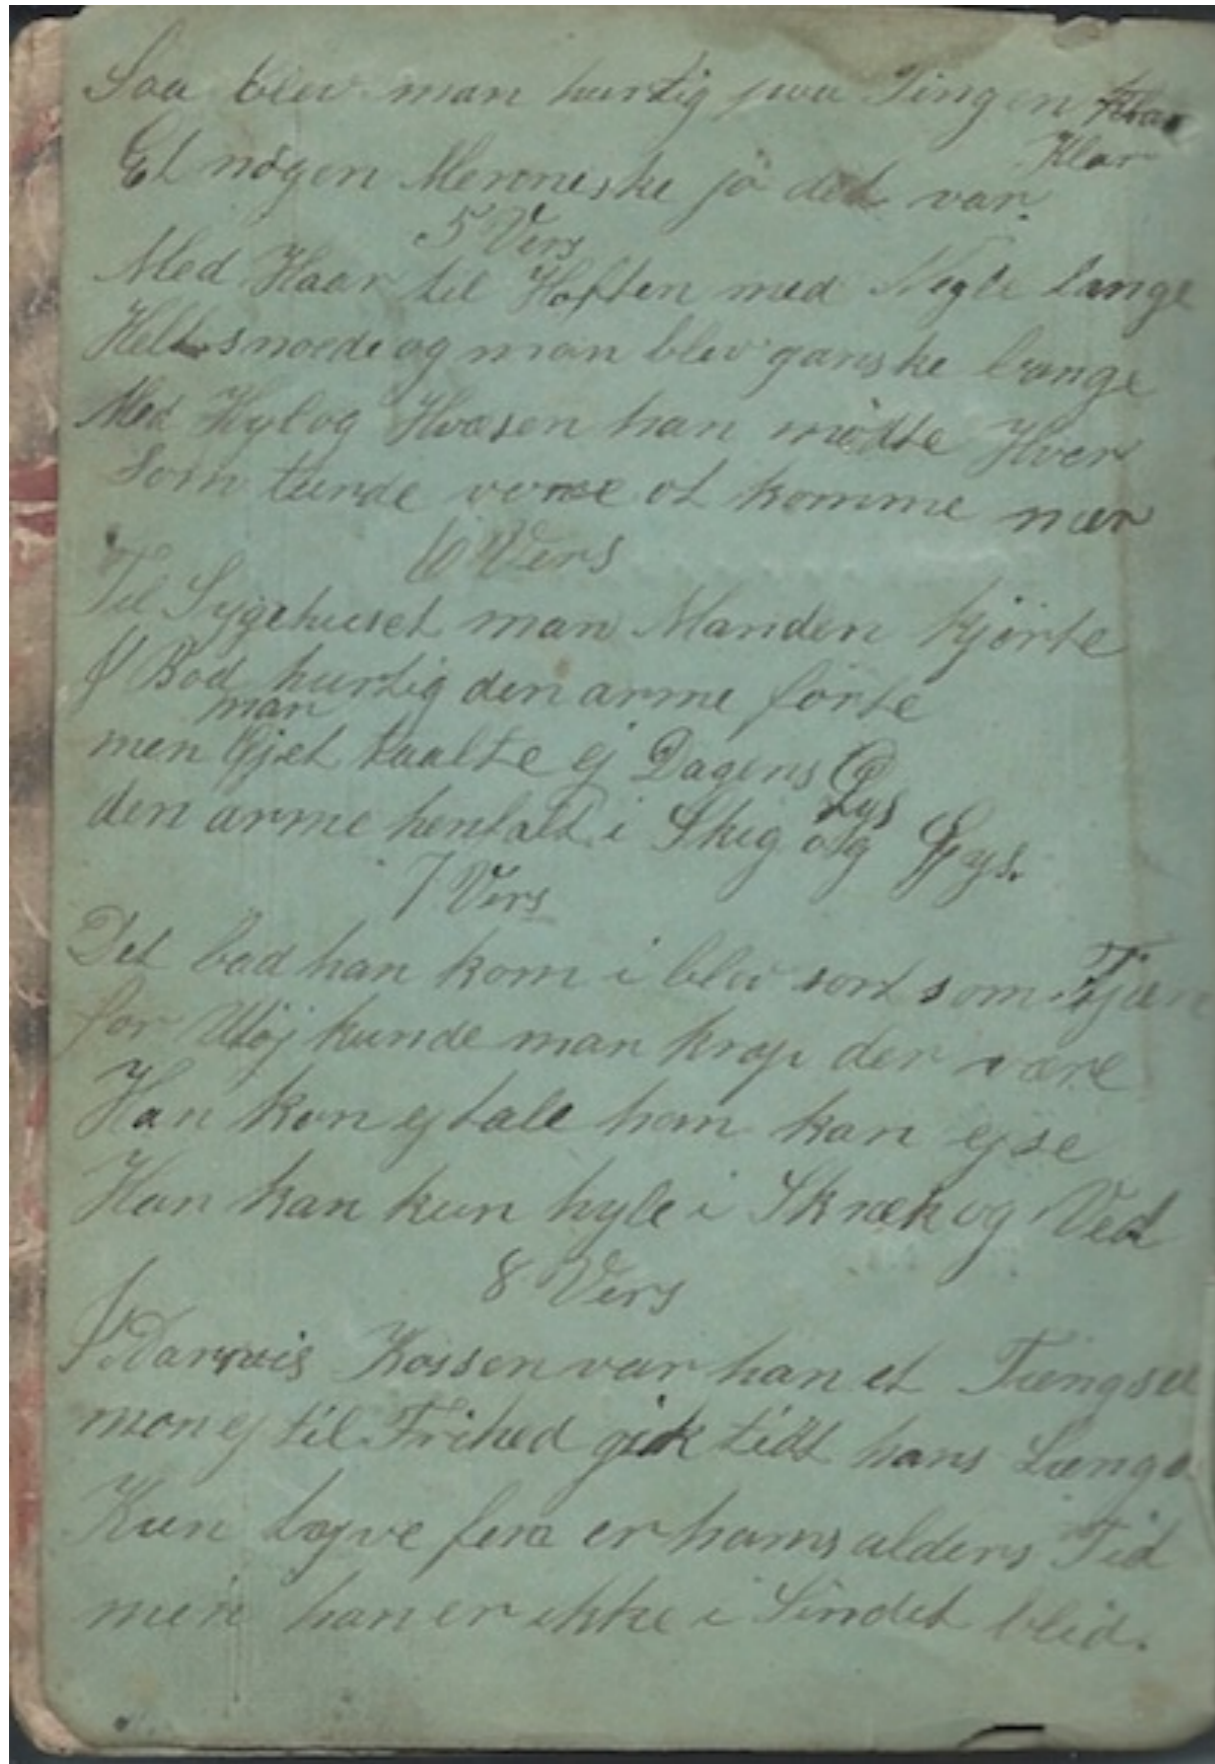 Saa blev man hurtig paa Tingen
Klar
Et nögen Menneske jö det var.
5 Vers
Med Haar til Hoften med Negle lange
Helt snoede og man blev ganske bange
Med Hyl og Hvæsen han mödte Hver
Som turde vove at komme nær
6 Vers
Til Sygehuset man Manden kjörte
I Bad hurtig den arme förte
man
men Öjet taalte ej Dagens
Lys
den arme henfalt i Skrig og Gys.
7 Vers
Det bad han kom i blev sort som Tjære
for Utöj kunde man krop der være
Han kan ej tale han kan ej se
Han kan kun hyle i Skræk og Ved
8 Vers
I Kassen var han et Fængsel
mon ej til Frihed gik tidt hans Længs
Kun tyve fem er hans alders Tid
men han er ikke i Sindet blid.